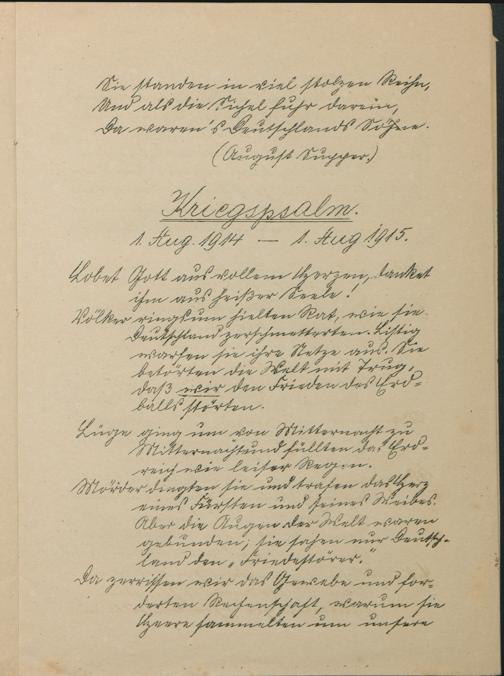 Sie standen in viel stolzen Reihn,
Und als die Sichel fuhr darein,
Da waren's Deutschlands Söhne.
(August Supper.)
Kriegspsalm.
1. Aug. 1914 — 1. Aug 1915.
Lobet Gott aus vollem Herzen, danket
ihm aus heißer Seele!
Völker ringsum hielten Rat, wie sie
Deutschland zerschmetterten. Listig
warfen sie ihre Netze aus. Sie
betörten die Welt mit Trug,
daß wir den Frieden des Erd=
balls störten.
Lüge ging um von Mitternacht zu
Mitternacht und füllten das Erd=
reich wie leiser Regen.
Mörder dingten sie und trafen das Herz
eines Fürsten und seines Weibes.
Aber die Augen der Welt waren
gebunden; sie sahen nur Deutsch=
land den „Friedestörer."
Da zerrissen wir das Gewebe und for=
derten Rechenschaft, warum sie
Heere sammelten um unsere